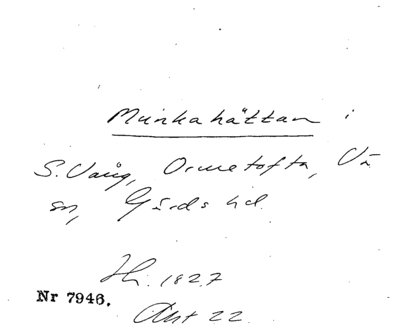 Munkahättan i
S. Vång, Ormetofta, Vå
sn, Gärds hd.
Hi. 1827
Nr 7946.
Akt 22